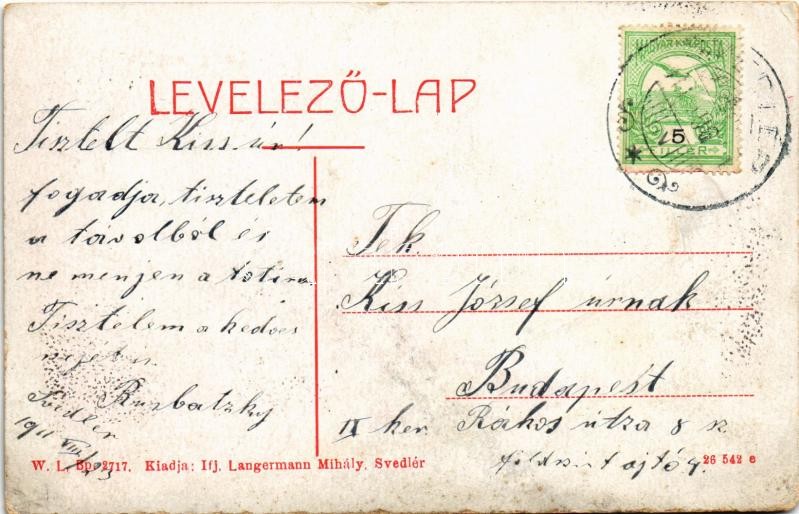 LEVELEZŐ-LAP
MAGYAR KIR. POSTA
5
FILLÉR
Tisztelt Kiss úr!
fogadja, tiszteletem
a távolból és
ne menjen a
Tisztelem a kedves
nejét
Svedlér
1911 VIII/23
Tek
Kiss József úrnak
Budapest
IX ker Rákos útza 8 sz
földszint ajtó 9.
W. L. Bp. 2717. Kiadja: Ifj. Langermann Mihály, Svedlér
26 542 e